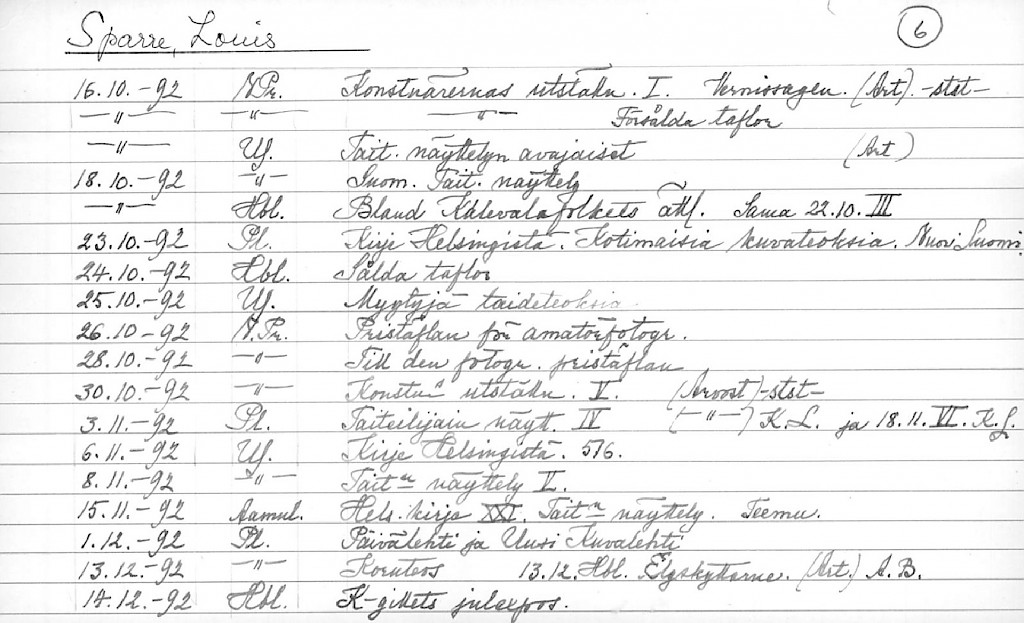 Sparre, Louis 6
16.10.-92 N.Pr. Konstnärernas utställn. I. Vernissagen. (Art). -stst-
—"— —"— —"— Försålda taflor
—"— Us. Tait. näyttelyn avajaiset (Art)
18.10.-92 —"— Suom. Tait. näyttely
—"— Hbl. Bland Kalevalafolkets ättl. Sama 22.10. III
23.10.-92 Pl. Kirje Helsingistä. Kotimaisia kuvateoksia. Nuori Suomi.
24.10.-92 Hbl. Sålda taflor
25.10.-92 Us. Myytyjä taideteoksia
26.10-92 N.Pr. Pristäflan för amatörfotogr.
28.10.-92 —"— Till den fotogr. pristäflan
30.10.-92 —"— utställn. V. (Arvost) -stst-
3.11.-92 Pl. Taiteilijain näytt. IV (—"—) K.L. ja 18.11. VI. K.L.
6.11.-92 Us. Kirje Helsingistä. 5/6.
8.11.-92 —"— Tait:n näyttely II.
15.11.-92 Aamul. Hels. kirje XXI. Tait:n näyttely. Teemu.
1.12.-92 Pl. Päivälehti ja Uusi Kuvalehti
13.12.-92 —"— Koruteos 13.12. Hbl. Elgskyttarne. (Art.) A.B.
14.12.-92 Hbl. K-gillets julexpos.